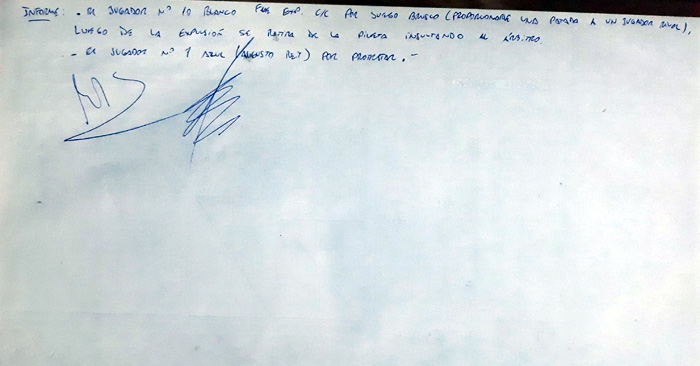 INFORME: - EL JUGADOR Nº 10 BLANCO FUE EXP. C/C POR JUEGO BRUSCO (PROPORCIONARLE UNA PATADA A UN JUGADOR RIVAL),
LUEGO DE LA EXPULSIÓN SE RETIRA DE LA PISTA INSULTANDO AL ÁRBITRO.
- EL JUGADOR Nº 7 AZUL (AUGUSTO REY) POR PROTESTAR. -